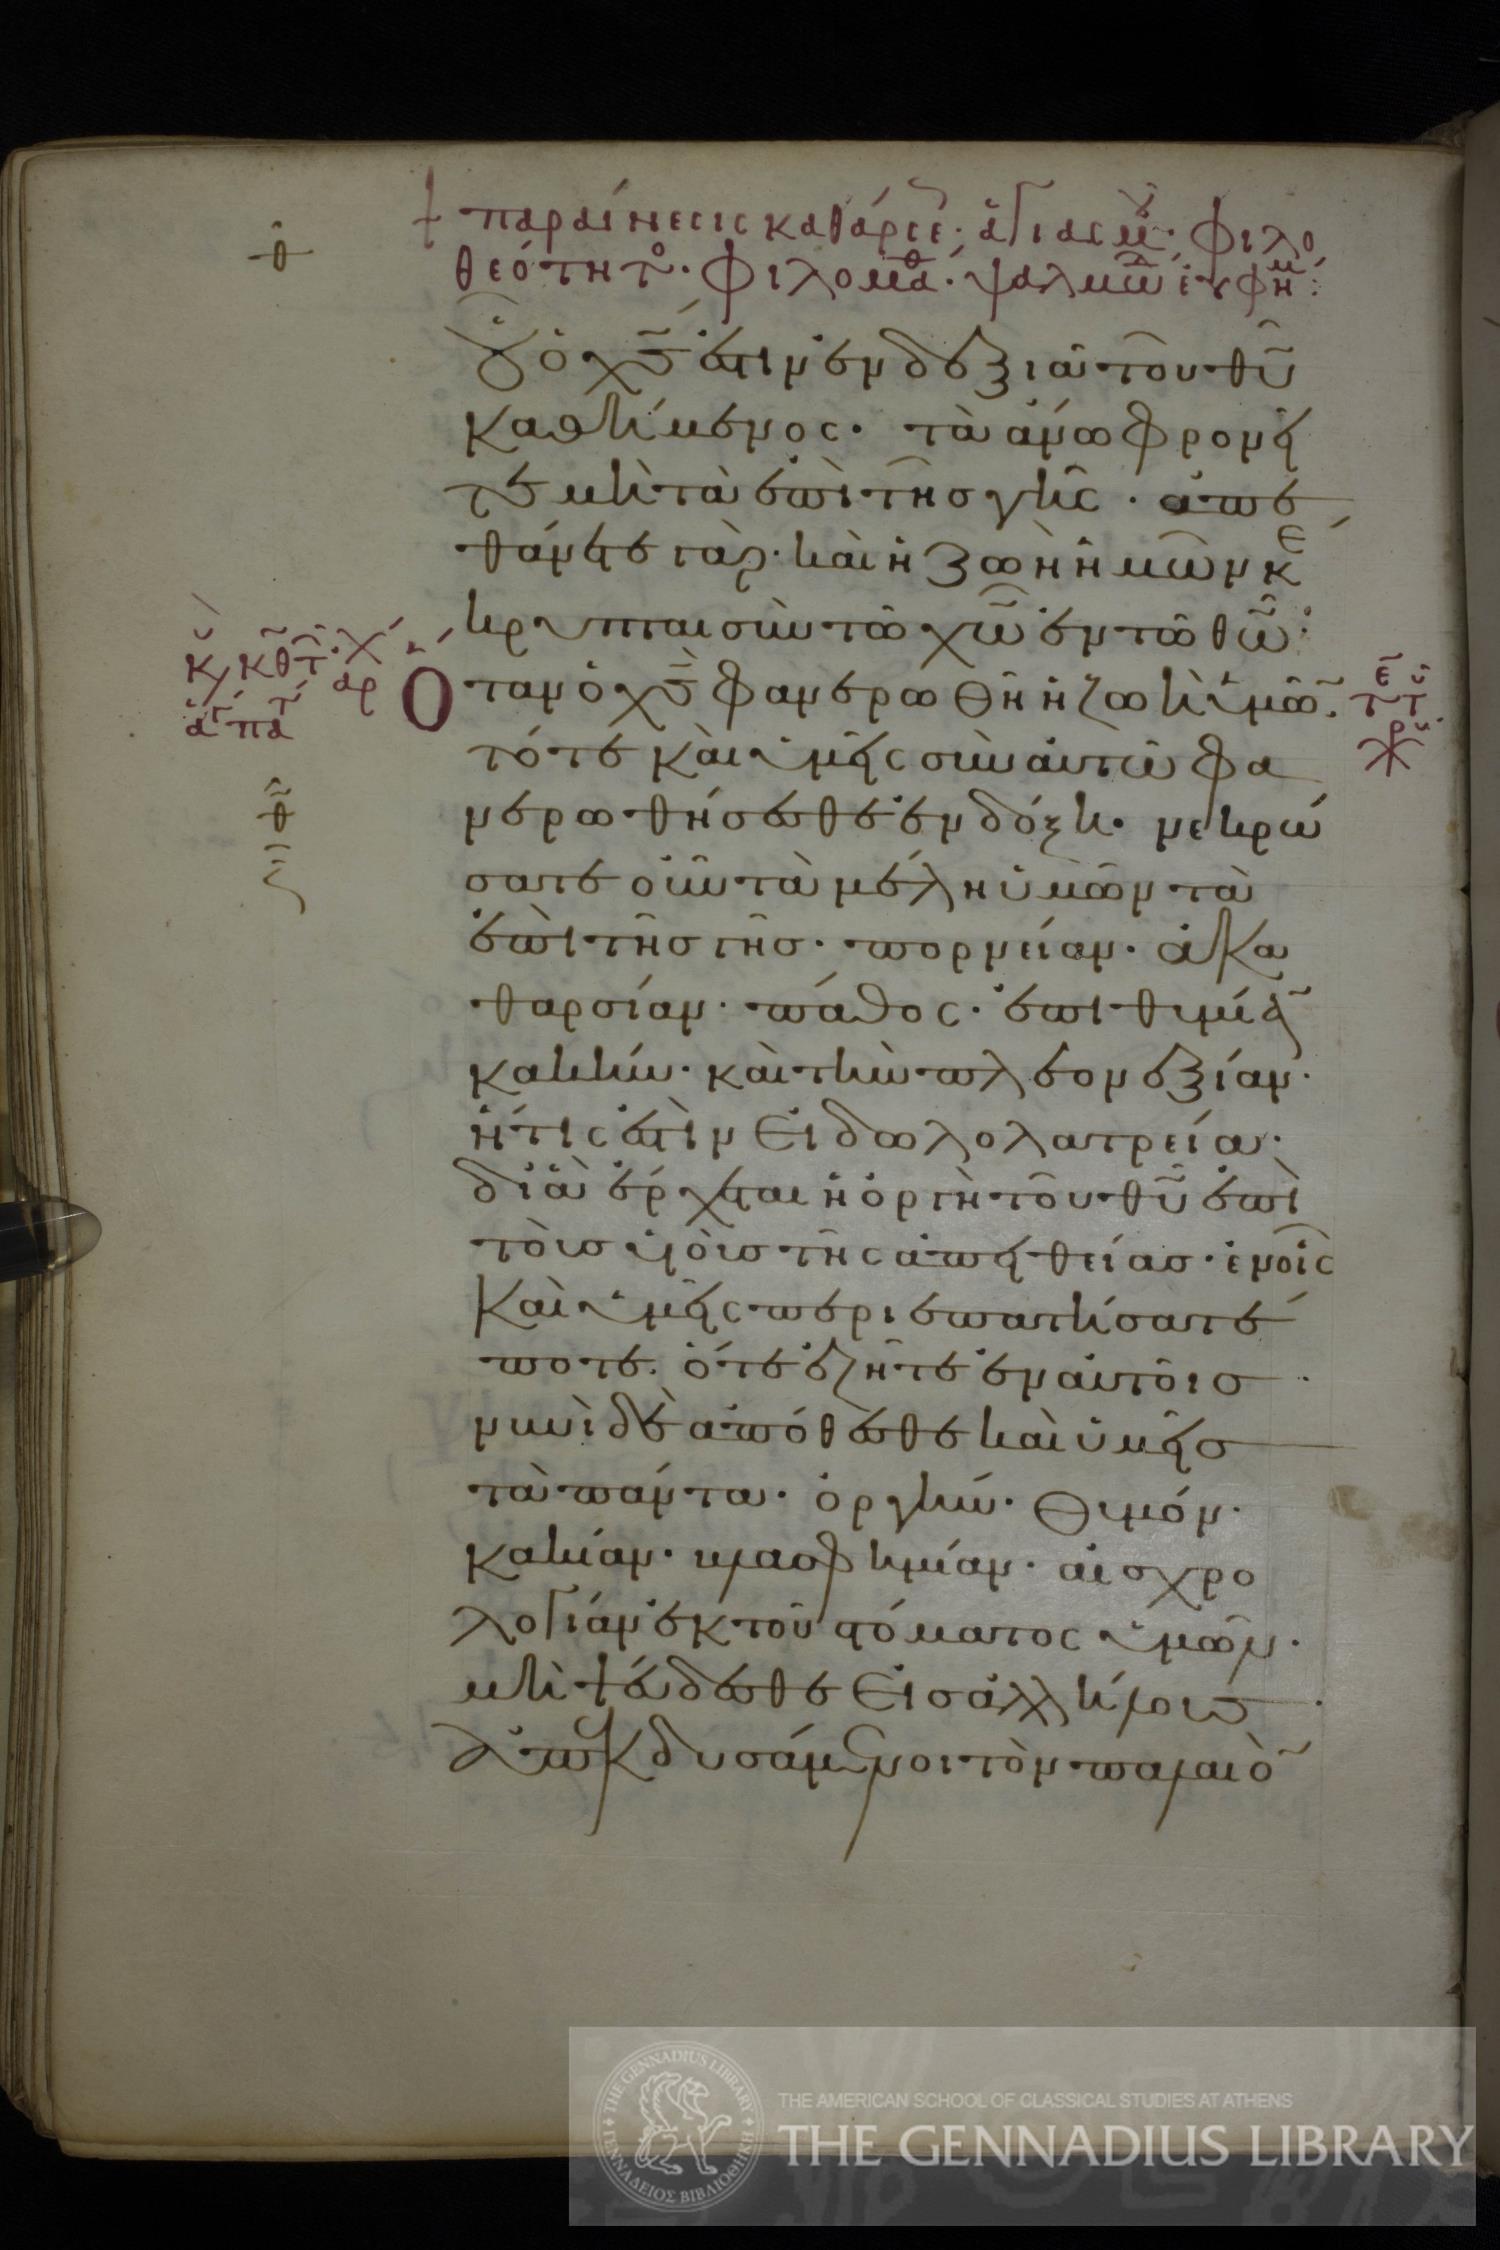 † παραίνεσις καθάρσε· ἁγιασμοῦ· φιλο
θεότητο· φιλομαθ· ψαλμωδ εὐφημ:
θ
οὗ ὁ χς ἐστιν ἐν δεξιᾶ τοῦ θυ
καθήμενος· τὰ ἄνω φρονεῖ
τε μὴ τὰ ἐπὶ τῆς γῆς· ἀπε
θάνετε γάρ· καὶ ἡ ζωὴ ἡμῶν κε
κρυπται σὺν τῶ χω ἐν τῶ θω:
Ὅταν ὁ χς φανερωθῆ ἡ ζωὴ ὑμῶ.
τότε καὶ ὑμεῖς σὺν αὐτῶ φα
νερωθήσεσθε ἐν δόξη· νεκρώ
σατε οὖν τὰ μέλη ὑμῶν τὰ
ἐπὶ τῆς γῆς· πορνείαν· ἀκα
θαρσίαν· πάθος· ἐπιθυμία
κακήν· καὶ τὴν πλεονεξίαν·
ἥτις ἐστὶν εἰδωλολατρεία·
δι ἃ ἔρχεται ἡ ὀργὴ τοῦ θυ ἐπὶ
τοὺς υἱοὺς τῆς ἀπειθείας· ἐν οἷς
καὶ ὑμεῖς περιεπατήσατέ
ποτε. ὅτε ἐζῆτε ἐν αὐτοῖς·
νυνὶ δὲ ἀπόθεσθε καὶ ὑμεῖς
τὰ πάντα· ὀργήν· θυμόν·
κακίαν· βλασφημίαν· αἰσχρο
λογίαν ἐκ τοῦ στόματος ὑμῶν·
μὴ ψεύδεσθε εἰς ἀλλήλους·
ἀπεκδυσάμενοι τὸν παλαιὸ
THE AMERICAN SCHOOL OF CLASSICAL STUDIES AT ATHENS
THE GENNADIUS LIBRARY
THE GENNADIUS LIBRARY
ΓΕΝΝΑΔΕΙΟΣ ΒΙΒΛΙΟΘΗΚΗ